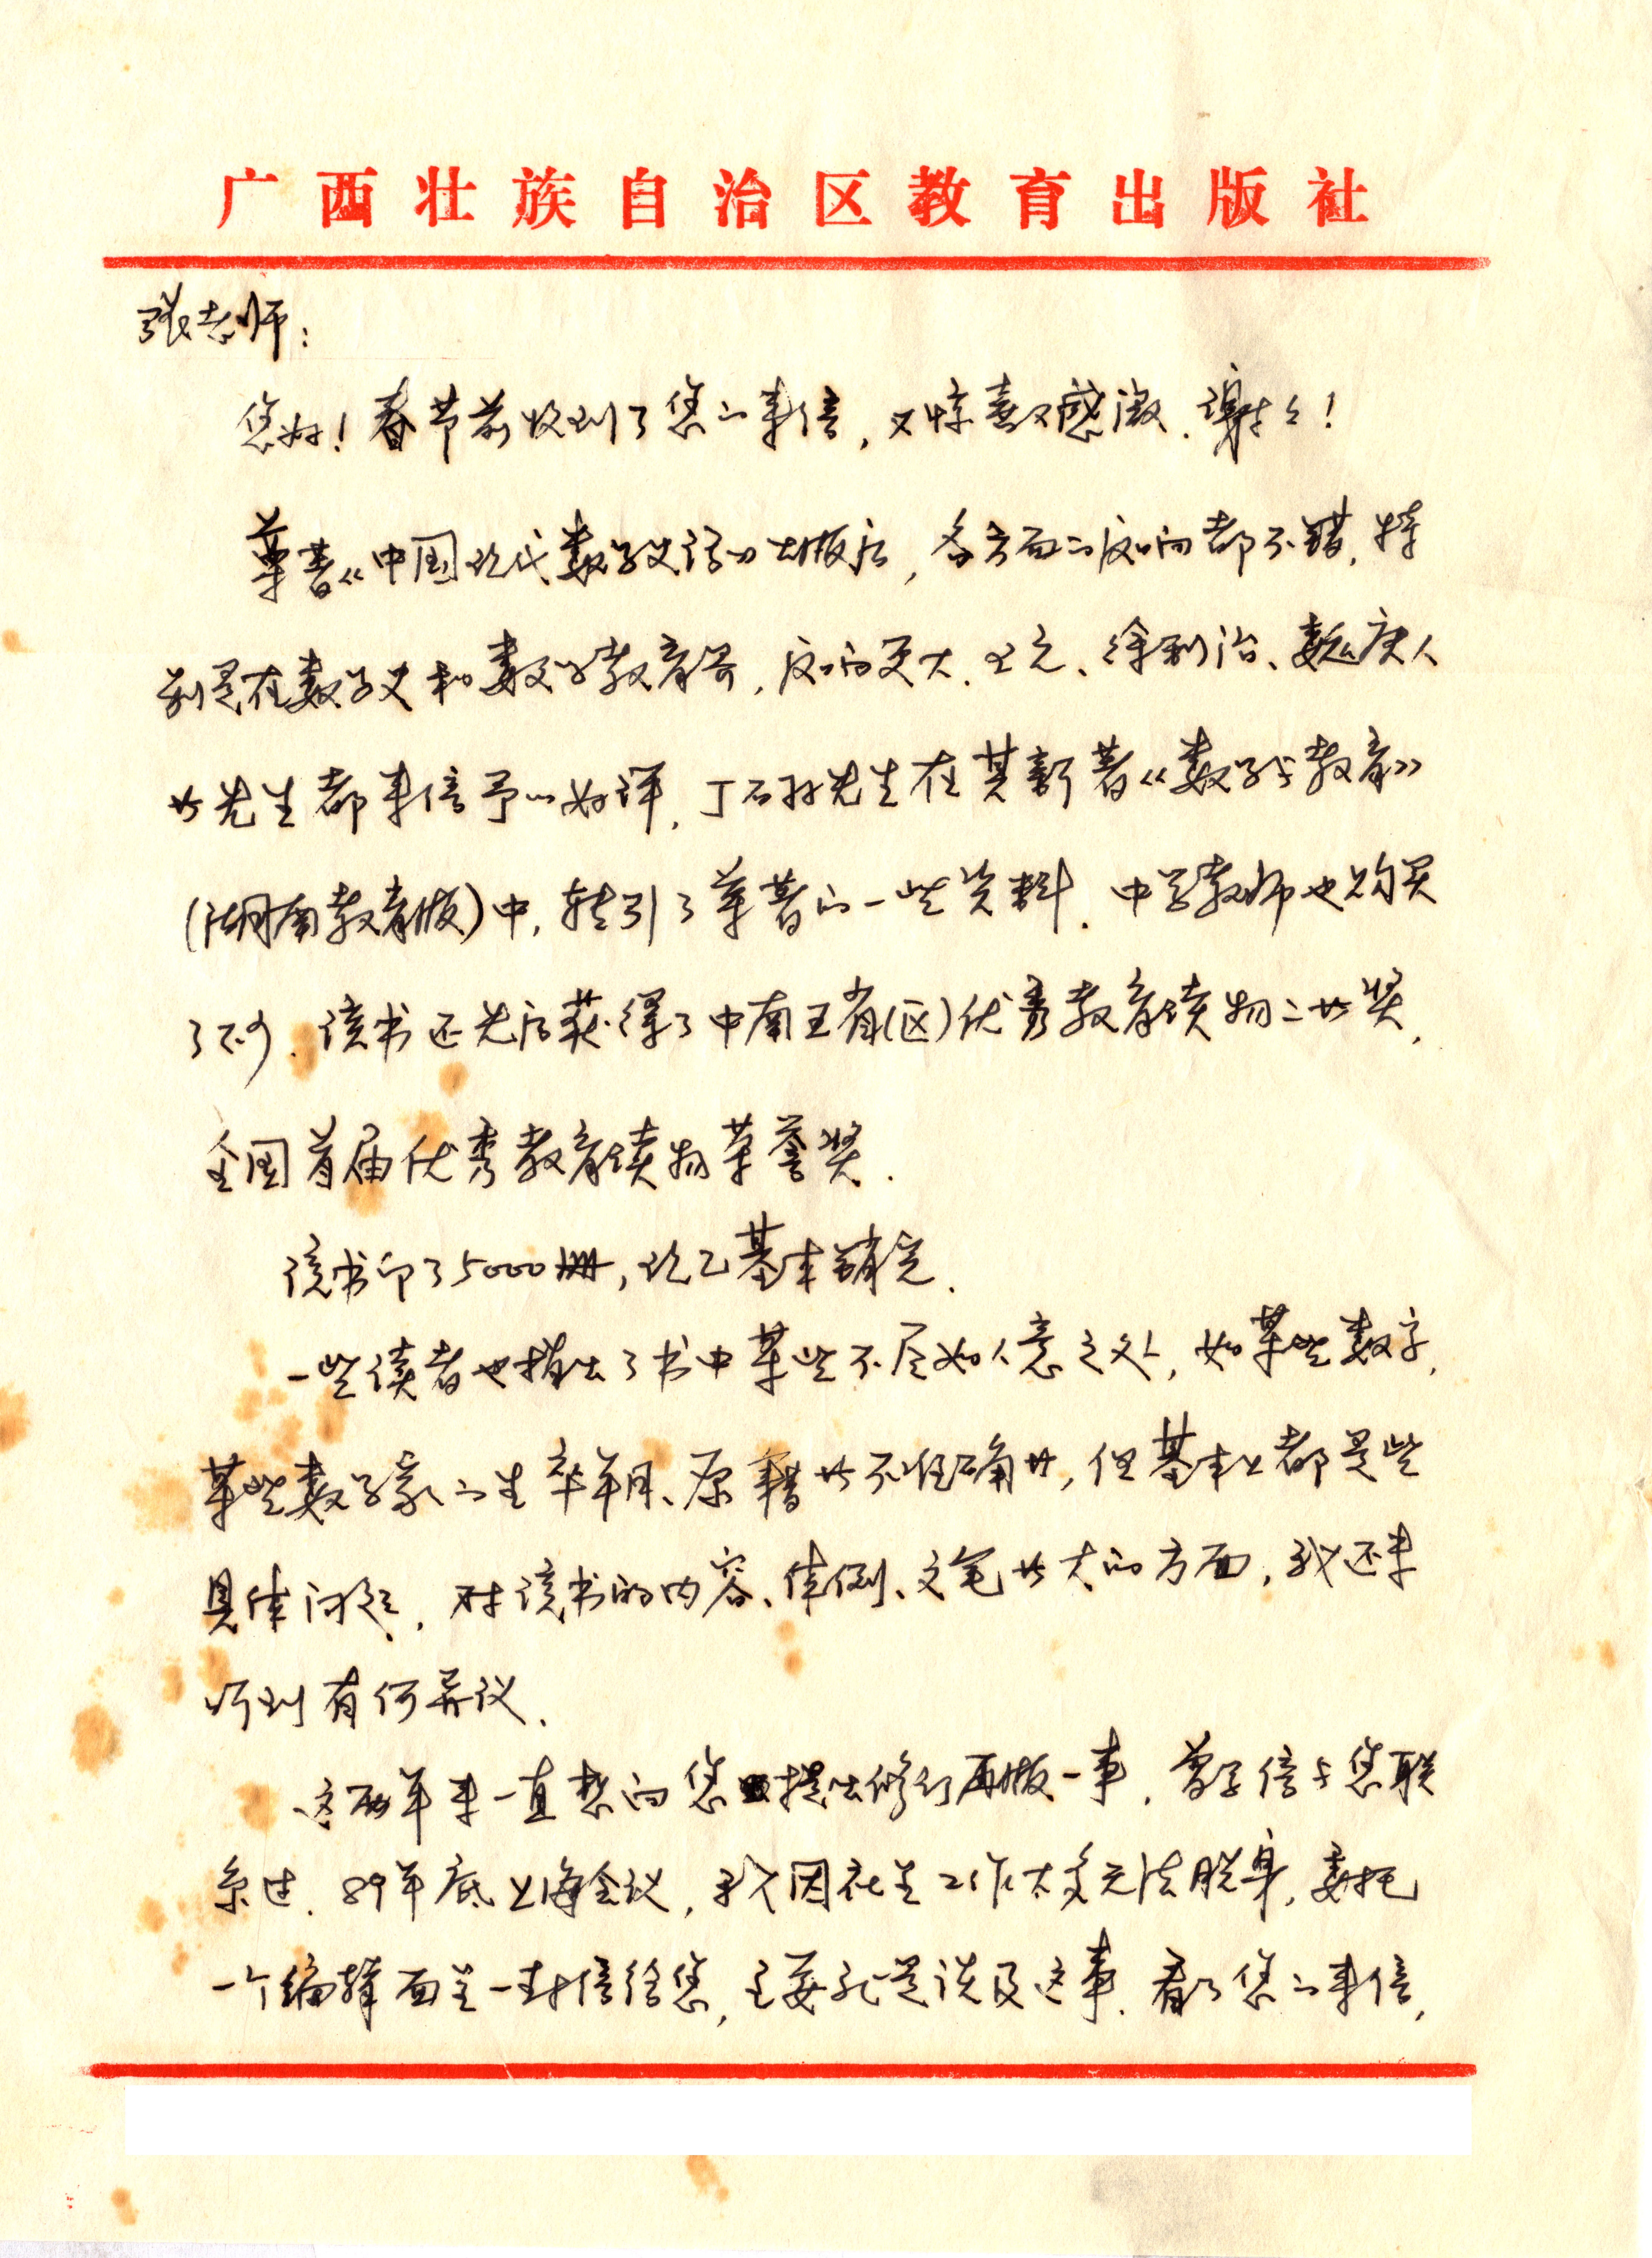 广西壮族自治区教育出版社
张老师：
您好！春节前收到了您的来信，又惊喜又感激，谢谢！
尊著《中国现代数学史话》出版后，各方面的反响都不错，特
别是在数学史和数学教育界，反响更大。王元、徐利治、魏庚人
等先生都来信予以好评，丁石孙先生在其新著《数学与教育》
（湖南教育版）中，转引了尊著的一些资料。中学教师也购买
了不少。该书还先后获得了中南五省（区）优秀教育读物二等奖，
全国首届优秀教育读物荣誉奖。
该书印了5000册，现已基本销完。
一些读者也指出了书中某些不尽如人意之处，如某些数字，
某些数学家的生卒年月、原籍等不准确等，但基本上都是些
具体问题，对该书的内容、体例、文笔等大的方面，我还未
听到有何异议。
这两年来一直想向您提出修订再版一事，曾写信与您联
系过。89年底上海会议，我因社里工作太多无法脱身，委托
一个编辑面呈一封信给您，主要就是谈及这事。看了您的来信，